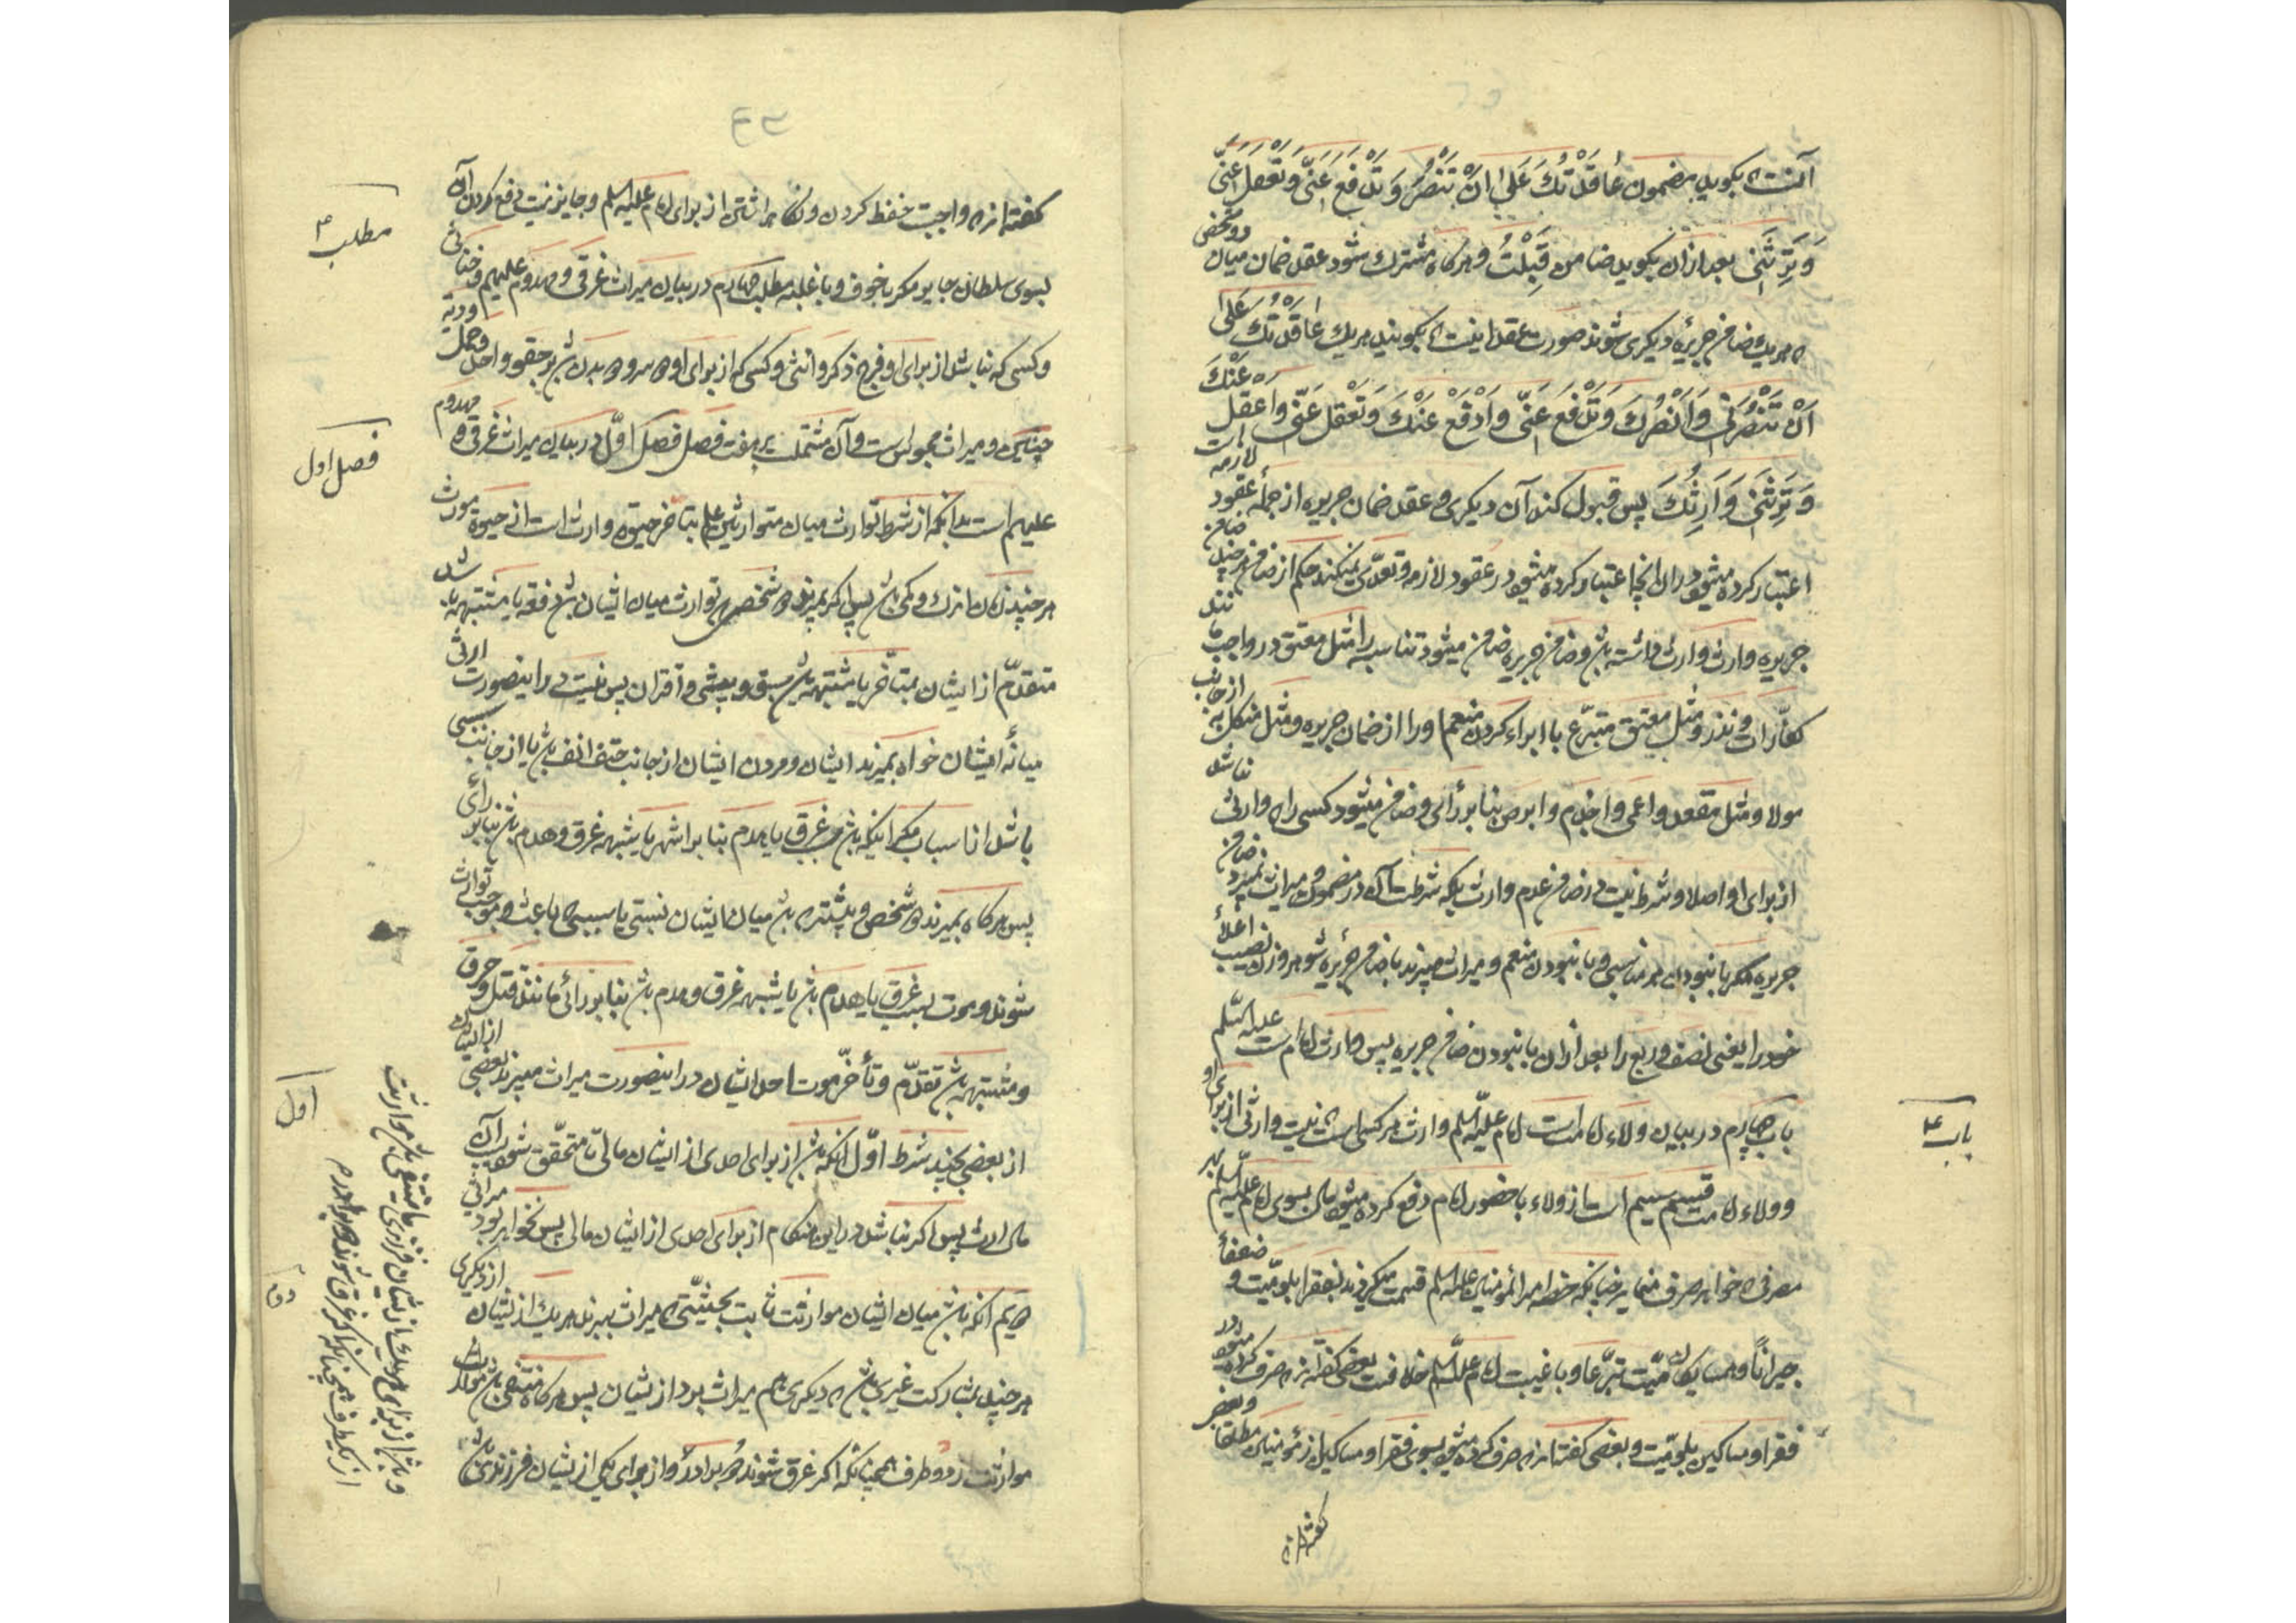 آنست که بکوید مضمون عٰاقَدْتُكَ عَلىٰ اَنْ تَنْصُرَ وَ تَدْفَعَ عَنّي وَ تَعْقِلَ عَنّي
وَ تَرِثَني بعد از آن بکوید ضامن قَبِلْتُ و هرکاه مشترک شود عقد ضمان میان دو شخص
که هر یک ضامن جریرهٔ دیکری شوند صورت عقد اینست که بکویند هر یک عٰاقَدْتُكَ عَلىٰ
اَنْ تَنْصُرَني وَ اَنْصُرَكَ وَ تَدْفَعَ عَنّي وَ اَدْفَعَ عَنْكَ وَ تَعْقِلَ عَنّي وَ اَعْقِلَ عَنْكَ
وَ تَرِثَني وَ اَرِثُكَ پس قبول کند آن دیکری و عقد ضمان جریره از جملهٔ عقود لازمه است
اعتبار کرده میشود در آن آنچه اعتبار کرده میشود در عقود لازمه و تعدّی نمیکند حکم از ضامن هرچند ضامن
جریره وارث وارث داشته باشد و ضامن جریره ضامن میشود تناسبه را مثل معتق در واجب مانند
کفّارات و نذر و مثل معتق متبرّع با ابراء کردن منعم او را از ضمان جریره و مثل منکل به از جانب
مولا و مثل مقعد و اعمی و اجذم و ابرص بنا بر رأی و ضامن میشود کسی را که وارثی نباشد
از برای او اصلا و شرط نیست در ضامن عدم وارث بلکه شرطست آن در مضمون و میراث نمیبرد ضامن
جریره مکر با نبودن هر مناسبی و با نبودن منعم و میراث میبرند با ضامن جریره شوهر و زن نصیب اعلای
خود را یعنی نصف و ربع را بعد از آن با نبودن ضامن جریره پس وارث امام است علیه السّلم
باب چهارم در بیان ولاء امامت است امام علیه السّلم وارث هر کسی است که نیست وارثی از برای او
و ولاء امامت قسیم سیم است از ولاء با حضور امام دفع کرده میشود مال بسوی امام علیه السّلم بهر
مصرفی که خواهد صرف مینماید چنانکه حضرت امیر المؤمنین علیه السلم قسمت میکردند بفقرا بلد میّت و ضعفاء
جیران و همسایکان میّت تبرّعا و با غیبت امام علیه السّلم خلافست بعضی کفته‌اند که صرف کرده میشود در
فقرا و مساکین بلد میّت و بعضی کفته‌اند که صرف کرده میشود بسوی فقرا و مساکین از مؤمنین مطلقا و بعضی
کفته‌اند
باب ۴
کفته‌اند که واجبست حفظ کردن و نکاه داشتن از برای امام علیه السلم و جایز نیست دفع کردن آن
بسوی سلطان جایر مکر با خوف و با غلبه مطلب چهارم در بیان میراث غرقی و مهدوم علیهم و خناثی
و کسی که نباشد از برای او فرج ذکر و انثی و کسی که از برای او دو سر و دو بدن باشد بر حقو واحد و حمل و دیه
جنین و میراث مجوس است و آن مشتملست بر هفت فصل فصل اوّل در بیان میراث غرقی و مهدوم
علیهم است بدانکه از شرط توارث میان متوارثین علم بتأخر حیوة وارث است از حیوة مورث
هر چند زمان اندک و کمی باشد پس اکر بمیرند دو شخصی که توارث میان ایشان باشد دفعة یا مشتبه باشد
متقدّم از ایشان بمتأخر یا مشتبه باشد سبق و پیشی و اقتران پس نیست در اینصورت ارثی
میانهٔ ایشان خواه بمیرند ایشان و مردن ایشان از جانب حتف انف باشد یا از جانب سببی
باشد از اسباب مکر اینکه باشد سبب غرق یا هدم بنا بر اشهر یا بشبه غرق و هدم باشد بنا بر رائی
پس هرکاه بمیرند دو شخص و بیشتر که باشد میان ایشان نسبتی یا سببی که باعث و موجب توارث
شوند و موت بسبب غرق یا هدم باشد یا بشبه غرق و هدم باشد بنا بر رائی مانند قتل و حرق
و مشتبه باشد تقدّم و تأخّر موت احد ایشان در اینصورت میراث میبرند بعضی از ایشان
از بعضی بچند شرط اوّل آنکه باشد از برای احدی از ایشان مالی تا متحقّق شود بسبب آن
مال ارث پس اکر نباشد در این هنکام از برای احدی از ایشان مالی پس نخواهد بود میراثی
دویم آنکه باشد میان ایشان موارثت ثابت بحیثیّتی که میراث ببرند هر یک از ایشان از دیکری
هر چند بمشارکت غیری باشد که دیکری هم میراث برد از ایشان پس هرکاه منتفی باشد موارثت
موارثت از دو طرف همچنانکه اکر غرق شوند دو برادر و از برای یکی از ایشان فرزندی باشد
مطلب ۴
فصل اول
اول
دوم
و باشد از برای هر یک از ایشان فرزندی منتفی باشد موارثت
از یکطرف همچنانکه اکر غرق شوند دو برادر